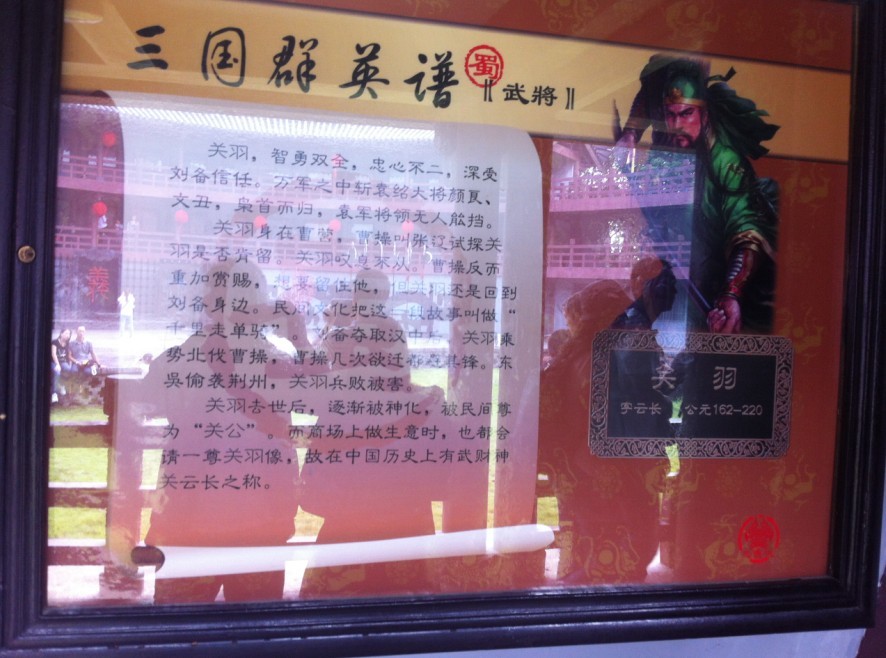 三国群英谱
蜀
〖武將〗
关羽，智勇双全，忠心不二，深受
刘备信任。万军之中斩袁绍大将颜良、
文丑，枭首而归，袁军将领无人能挡。
关羽身在曹营，曹操叫张辽试探关
羽是否肯留。关羽叹息不从。曹操反而
重加赏赐，想要留住他，但关羽还是回到
刘备身边。民间文化把这一段故事叫做“
千里走单骑”。刘备夺取汉中后，关羽乘
势北伐曹操，曹操几次欲迁都避其锋。东
吴偷袭荆州，关羽兵败被害。
关羽去世后，逐渐被神化，被民间尊
为“关公”。而商场上做生意时，也都会
请一尊关羽像，故在中国历史上有武财神
关云长之称。
关 羽
字云长 公元162-220